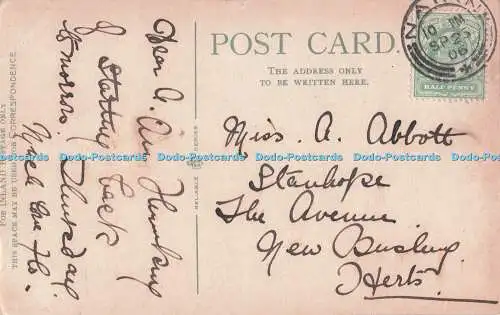 POST CARD.
THE ADDRESS ONLY
TO BE WRITTEN HERE.
FOR INLAND POSTAGE ONLY
THIS SPACE MAY BE USED FOR CORRESPONDENCE.
Dear A. Am Thinking
of Starting back
tomorro. Thursday.
Much love Flo.
10 PM
SP 25
06
HALF PENNY
Miss. A. Abbott
Stanhope
The Avenue
New Bushey
Herts.
Dodo-Postcards Dodo-Postcards Dodo-Postcards Dodo-Postcards Dodo-Postcards Dodo-Postcards